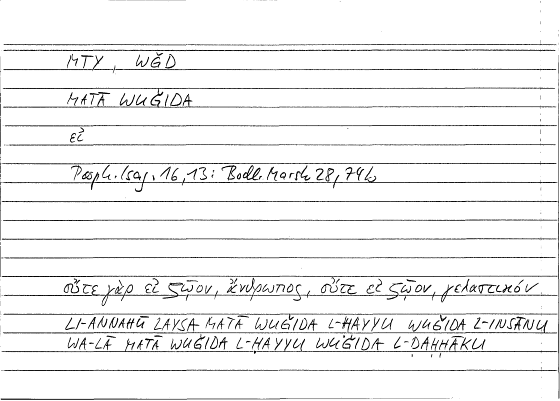 MTY, WǦD
MATĀ WUǦIDA
εἰ
Porph. Isag. 16,13: Bodl. Marsh 28, 74b
οὔτε γὰρ εἰ ζῷον, ἄνθρωπος, οὔτε εἰ ζῷον, γελαστικόν
LI-ANNAHŪ LAYSA MATĀ WUǦIDA L-ḤAYYU WUǦIDA L-INSĀNU
WA-LĀ MATĀ WUǦIDA L-ḤAYYU WUǦIDA L-ḌAḤḤĀKU